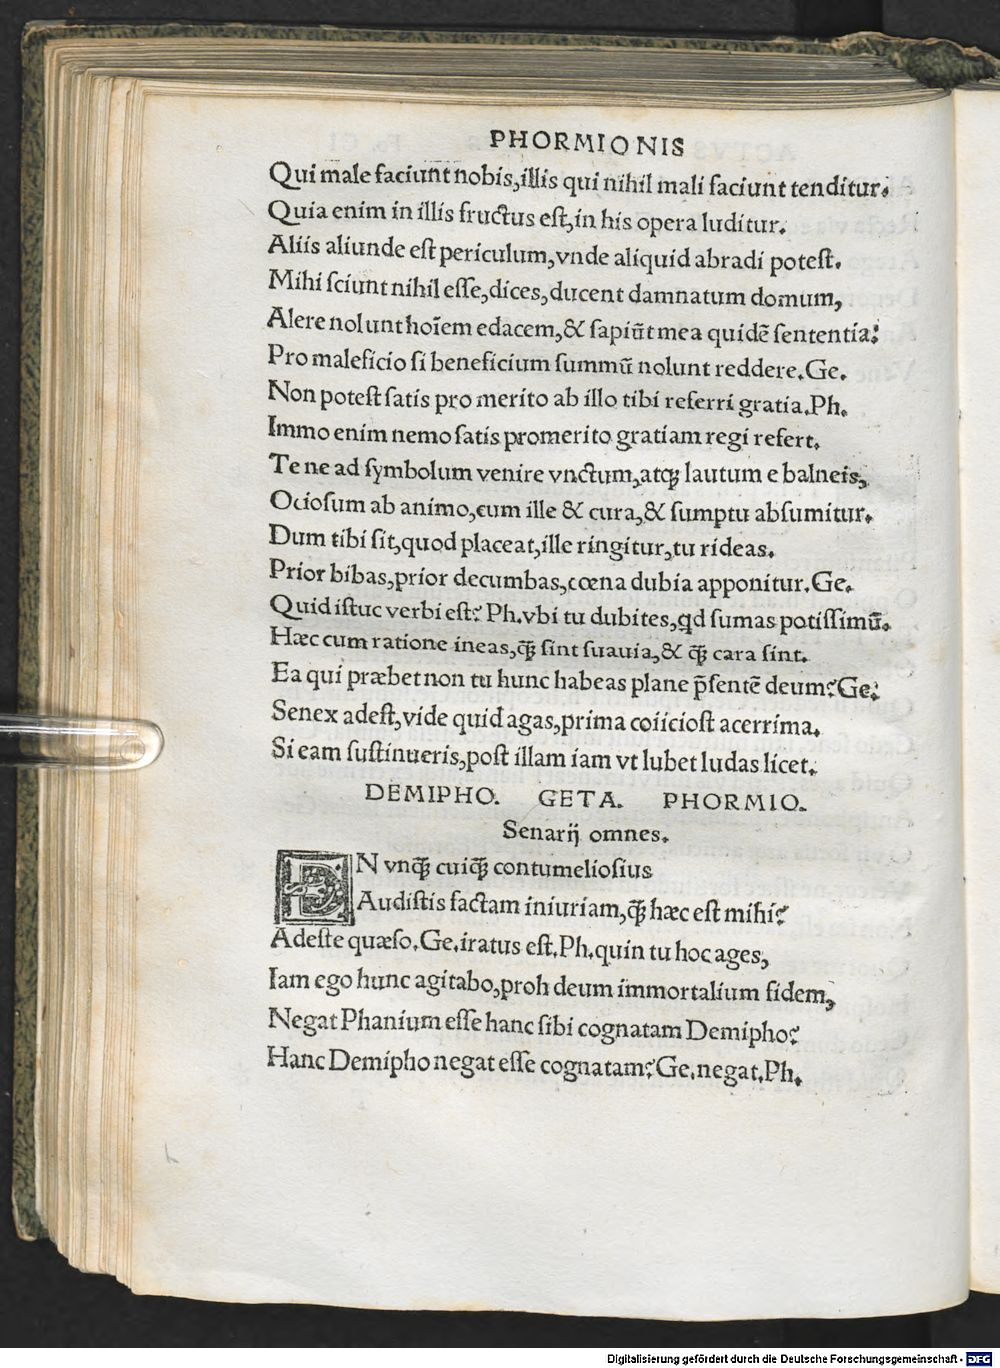 PHORMIONIS
Qui male faciunt nobis, illis qui nihil mali faciunt tenditur.
Quia enim in illis fructus est, in his opera luditur.
Aliis aliunde est periculum, vnde aliquid abradi potest.
Mihi sciunt nihil esse, dices, ducent damnatum domum,
Alere nolunt hoīem edacem, & sapiūt mea quidē sententia:
Pro maleficio si beneficium summū nolunt reddere. Ge.
Non potest satis pro merito ab illo tibi referri gratia. Ph.
Immo enim nemo satis promerito gratiam regi refert.
Te ne ad symbolum venire vnctum, atqꝫ lautum e balneis,
Ociosum ab animo, cum ille & cura, & sumptu absumitur.
Dum tibi sit, quod placeat, ille ringitur, tu rideas.
Prior bibas, prior decumbas, cœna dubia apponitur. Ge.
Quid istuc verbi est? Ph. vbi tu dubites, qd sumas potissimū.
Hæc cum ratione ineas, q̄ꝫ sint suauia, & q̄ꝫ cara sint.
Ea qui præbet non tu hunc habeas plane p̄sentē deum? Ge.
Senex adest, vide quid agas, prima coiiciost acerrima.
Si eam sustinueris, post illam iam vt lubet ludas licet.
DEMIPHO. GETA. PHORMIO.
Senarij omnes.
EN vnq̄ꝫ cuiq̄ꝫ contumeliosius
Audistis factam iniuriam, q̄ꝫ hæc est mihi?
Adeste quæso. Ge. iratus est. Ph. quin tu hoc ages,
Iam ego hunc agitabo, proh deum immortalium fidem,
Negat Phanium esse hanc sibi cognatam Demipho?
Hanc Demipho negat esse cognatam? Ge. negat. Ph.
Digitalisierung gefördert durch die Deutsche Forschungsgemeinschaft - DFG